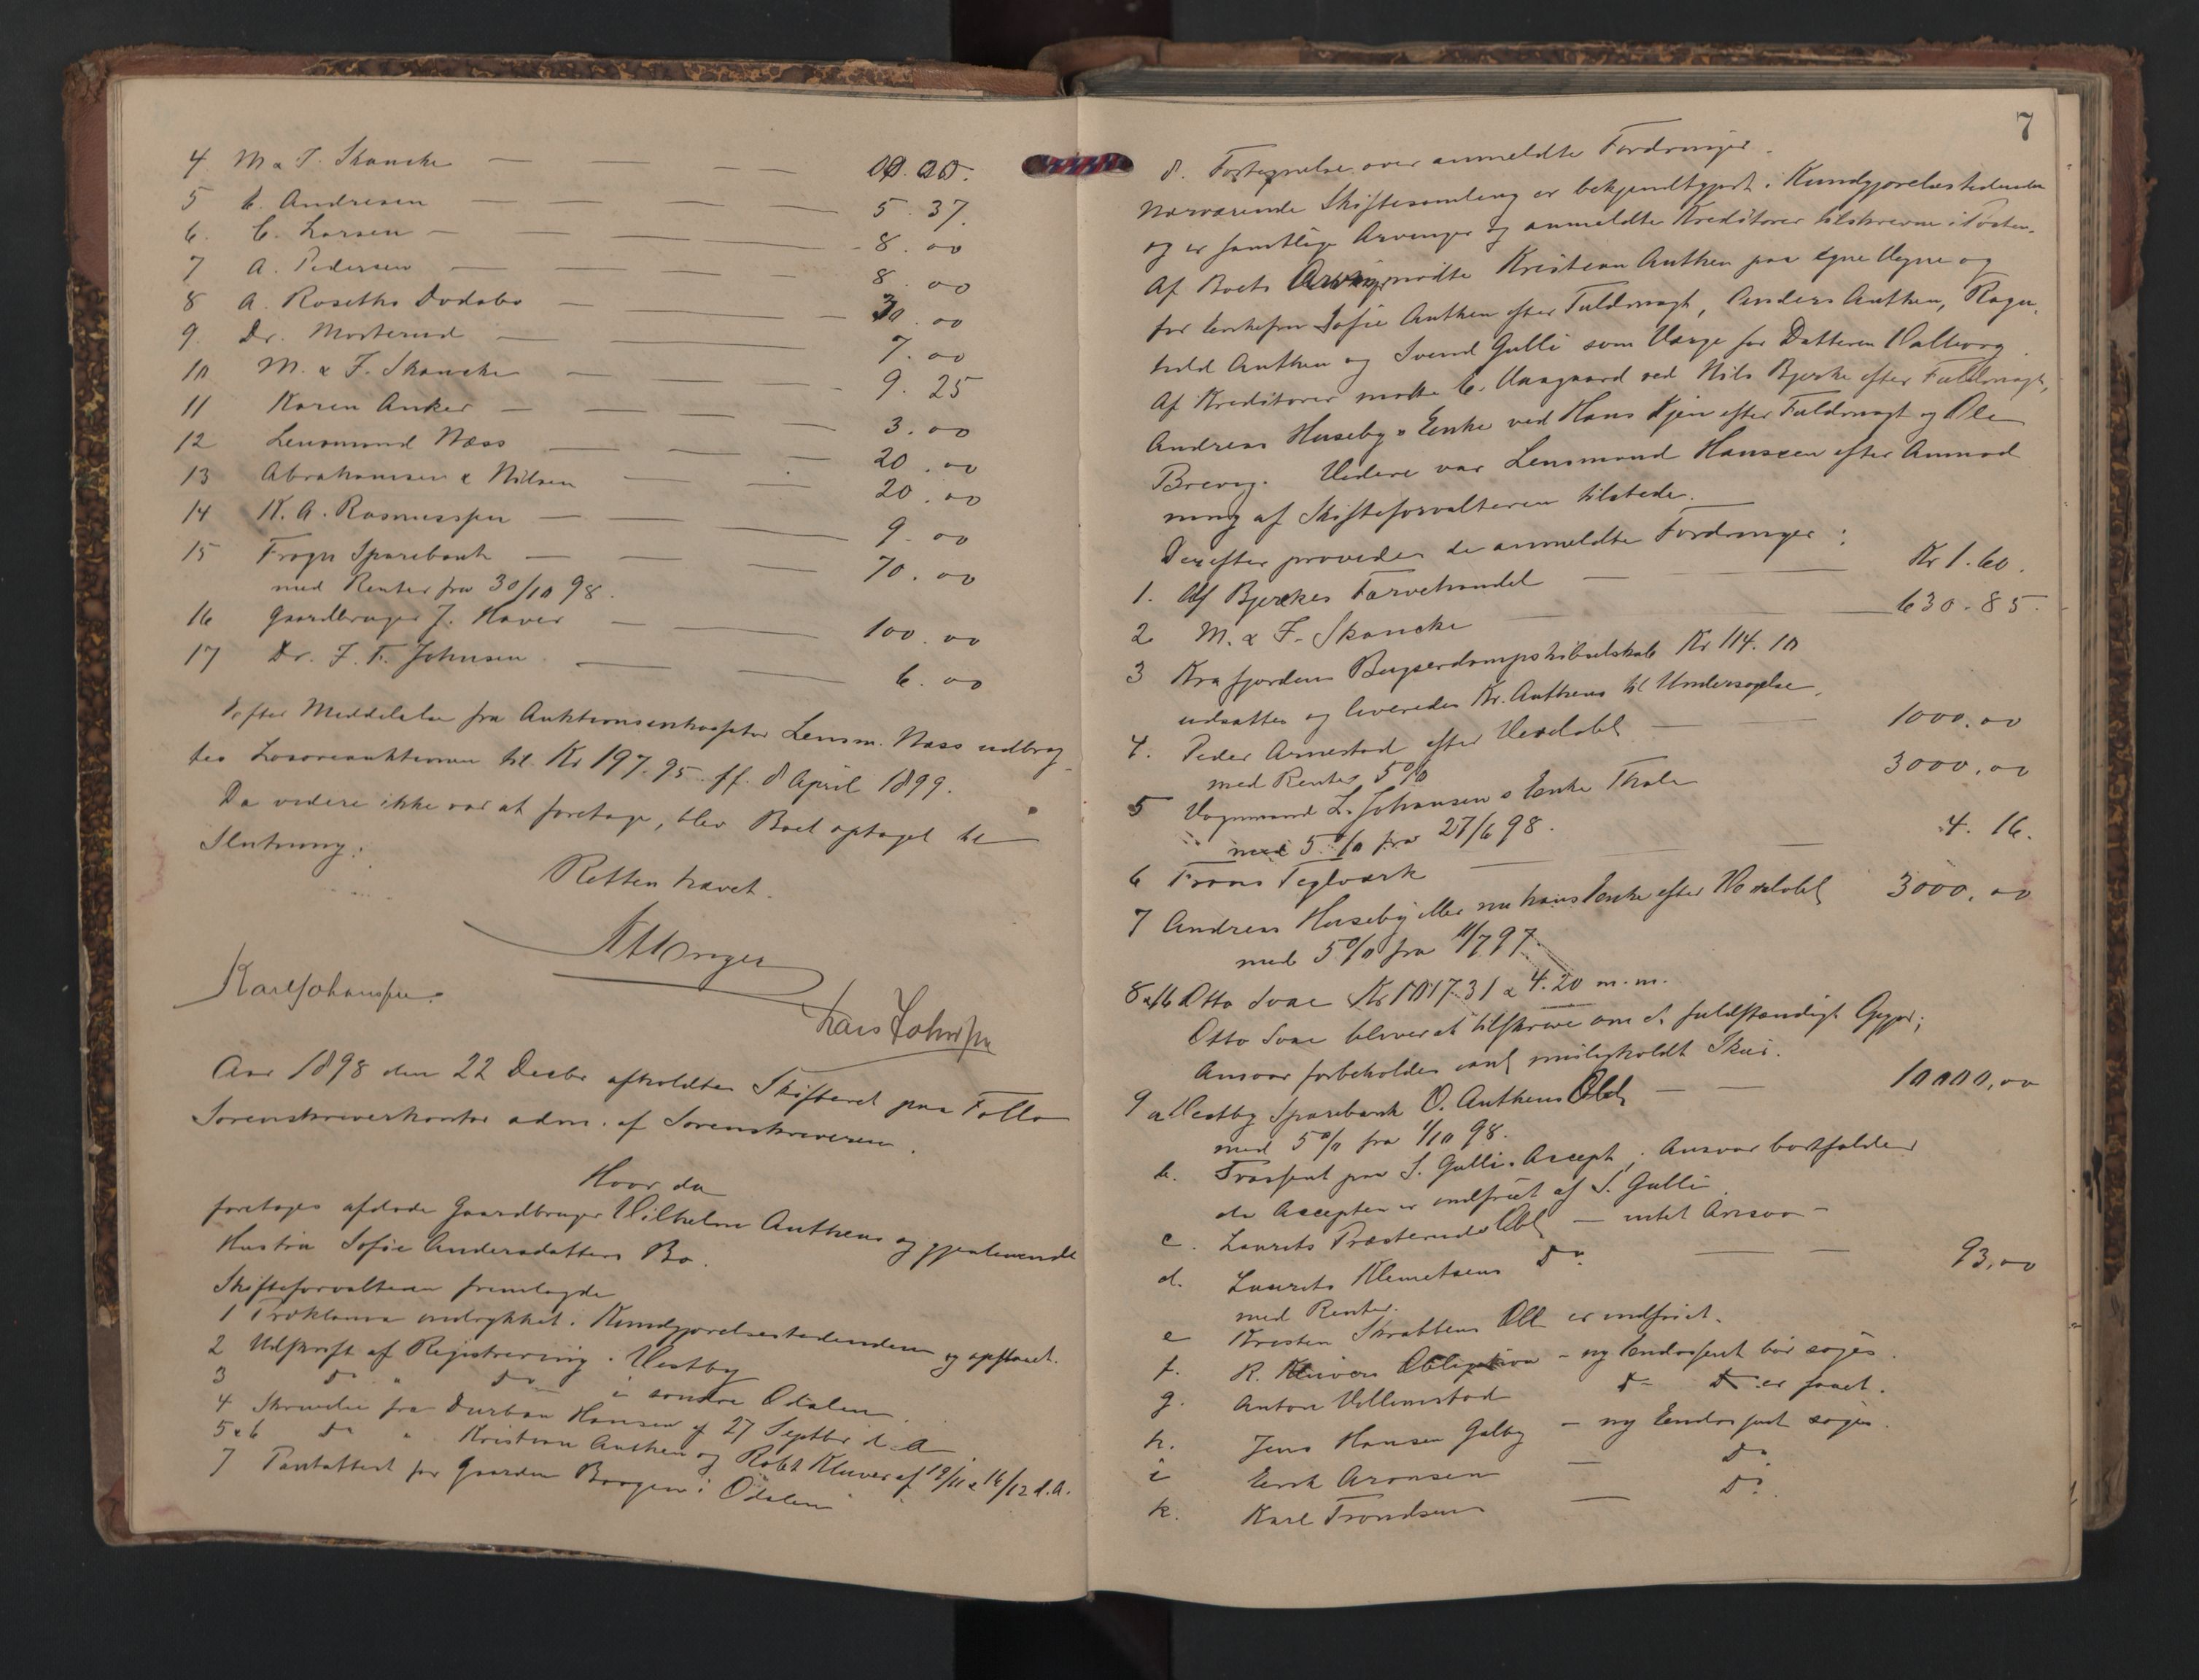 4 M & F. Skancke — — — —
5 C. Andresen — — — — 5.37.
6. C. Larsen — — — 8.00
7 A. Pedersen — — — 8.00
8 A. Roseths Dødsbo — — 30.00
9. Dr. Mosterud — — 7.00
10 M. & F. Skancke — — — 9.25
11 Karen Anker — — — 3.00
12 Lensmand Næss — — — 20.00
13 Abrahamsen & Nilsen — — 20.00
14 K. A. Rasmussen — — 9.00
15 Frogn Sparebank — — — 70.00
med Renter fra 30/10 98.
16 Gaardbruger J. Haver — — 100.00
17 Dr. J. F. Johnsen — — 6.00
Efter Meddelelse fra Auktionsinkassator Lensm. Næss udbrag-
tes Løsøreauktionen til Kr 197.95 ff. 8 April 1899.
Da videre ikke var at foretage, blev Boet optaget til
Slutning.
Retten hævet.
Karl Johansen.
Lars Johnsen
Aar 1898 den 22 Decbr afholdtes Skifteret paa Follo
Sorenskriverkontor adm. af Sorenskriveren.
Hvor da
foretoges afdøde Gaardbruger Vilhelm Anthens og gjenlevende
Hustru Sofie Andersdatters Bo.
Skifteforvalteren fremlagde
1 Proklama indrykket i Kundgjørelsestidenden og opslaaet.
2 Udskrift af Registrering i Vestby
3 do " do i søndre Odalen.
4 Skrivelse fra Durban Hansen af 27 Septbr d. A
5 & 6 do " Kristian Anthen og Robt Kluver af 19/11 & 16/12 d.A.
7 Pantattest for Gaarden i Odalen
7
8. Fortegnelse over anmeldte Fordringer.
Nærværende Skiftesamling er bekjendtgjort i Kundgjørelsestidenden
og er samtlige Arvinger og anmeldte Kreditorer tilskrevne i Posten.
Af Boets Arving mødte Kristian Anthen paa egne Vegne og
for Enkefru Sofie Anthen efter Fuldmagt, Anders Anthen, Ragn-
hild Anthen og Svend Gulli som Værge for Datteren Valborg.
Af Kreditorer mødte C. Aasgaard ved Nils Bjerke efter Fuldmagt,
Andreas Huseby s Enke ved Hans Kjen efter Fuldmagt og Ole
Brevig. Videre var Lensmand Hanssen efter Anmod
ning af Skifteforvalteren tilstede.
Derefter prøvedes de anmeldte Fordringer:
1. Alf Bjerckes Farvehandel — — Kr 1.60.
2 M. & F. Skancke — — 630.85.
3 Krafjordens Bugserdampskibselskab Kr 114.10
udsættes og leveredes Kr. Anthens til Undersøgelse.
4. Peder Arnestad efter Vexelobl — — 1000.00
med Renter 5%
5 Vognmand L. Johansen s Enke Thale 3000.00
med 5% fra 27/6 98.
6 Frons Teglværk — — — 4.16.
7 Andreas Huseby eller nu hans Enke efter Vexelobl 3000.00
med 5% fra 11/7 97.
8 Otto Svae Kr 1017.31 & 4.20 m.m.
Otto Svae bliver at tilskrive om et fuldstændigt Opgjør;
Ansvar forbeholdes
9 a Vestby Sparebank O. Anthens Obl — — 10000,00
med 5% fra 1/10 98.
b. Trassent paa S. Gulli s Accept; Ansvar bortfalder
da Accepten er indfriet af S. Gulli.
c. Laurits Præsteruds Obl — intet Ansvar —
d. Laurits Klemetsens Do. — — 93,00
med Renter.
e Kristen Skrattens Obl er indfriet.
f. R. Kluvers Obligation — ny Endossent bør søges.
g. Anton Villumstad Do Do er faaet.
h. Jens Hansen Galby — ny Endossent søges.
i Enok Aronsen — Do
k. Karl Trondsen — Do